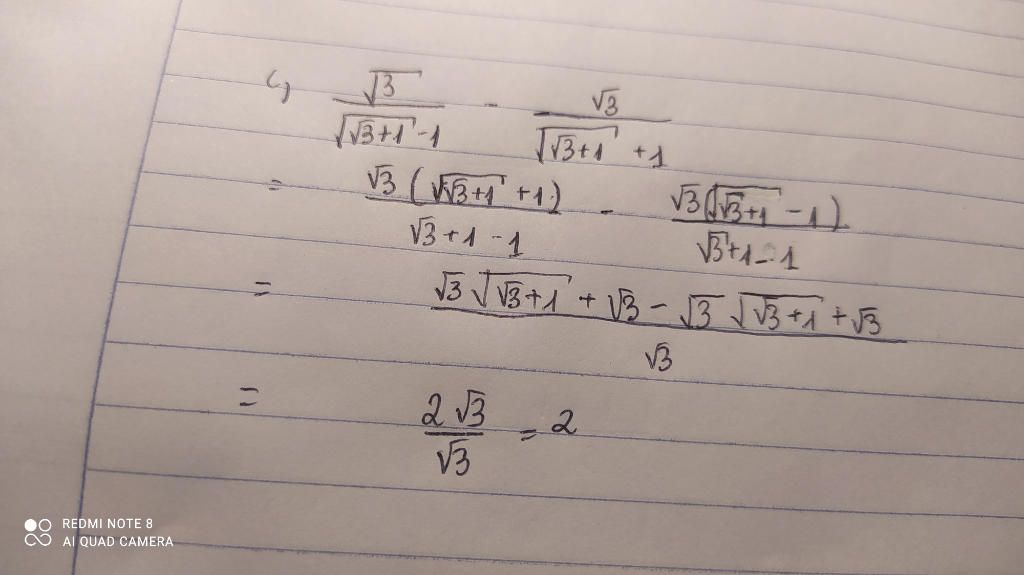 c, √3/(√(√3+1) -1) - √3/(√(√3+1) +1)
= √3(√(√3+1) +1)/(√3+1-1) - √3(√(√3+1) -1)/(√3+1-1)
= (√3√(√3+1) + √3 - √3√(√3+1) + √3)/√3
= 2√3/√3 = 2
REDMI NOTE 8
AI QUAD CAMERA